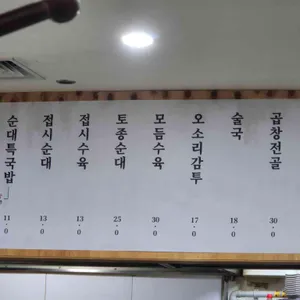 순대특국밥 11.0
접시순대 13.0
접시수육 13.0
토종순대 25.0
모듬수육 30.0
오소리감투 17.0
술국 18.0
곱창전골 30.0